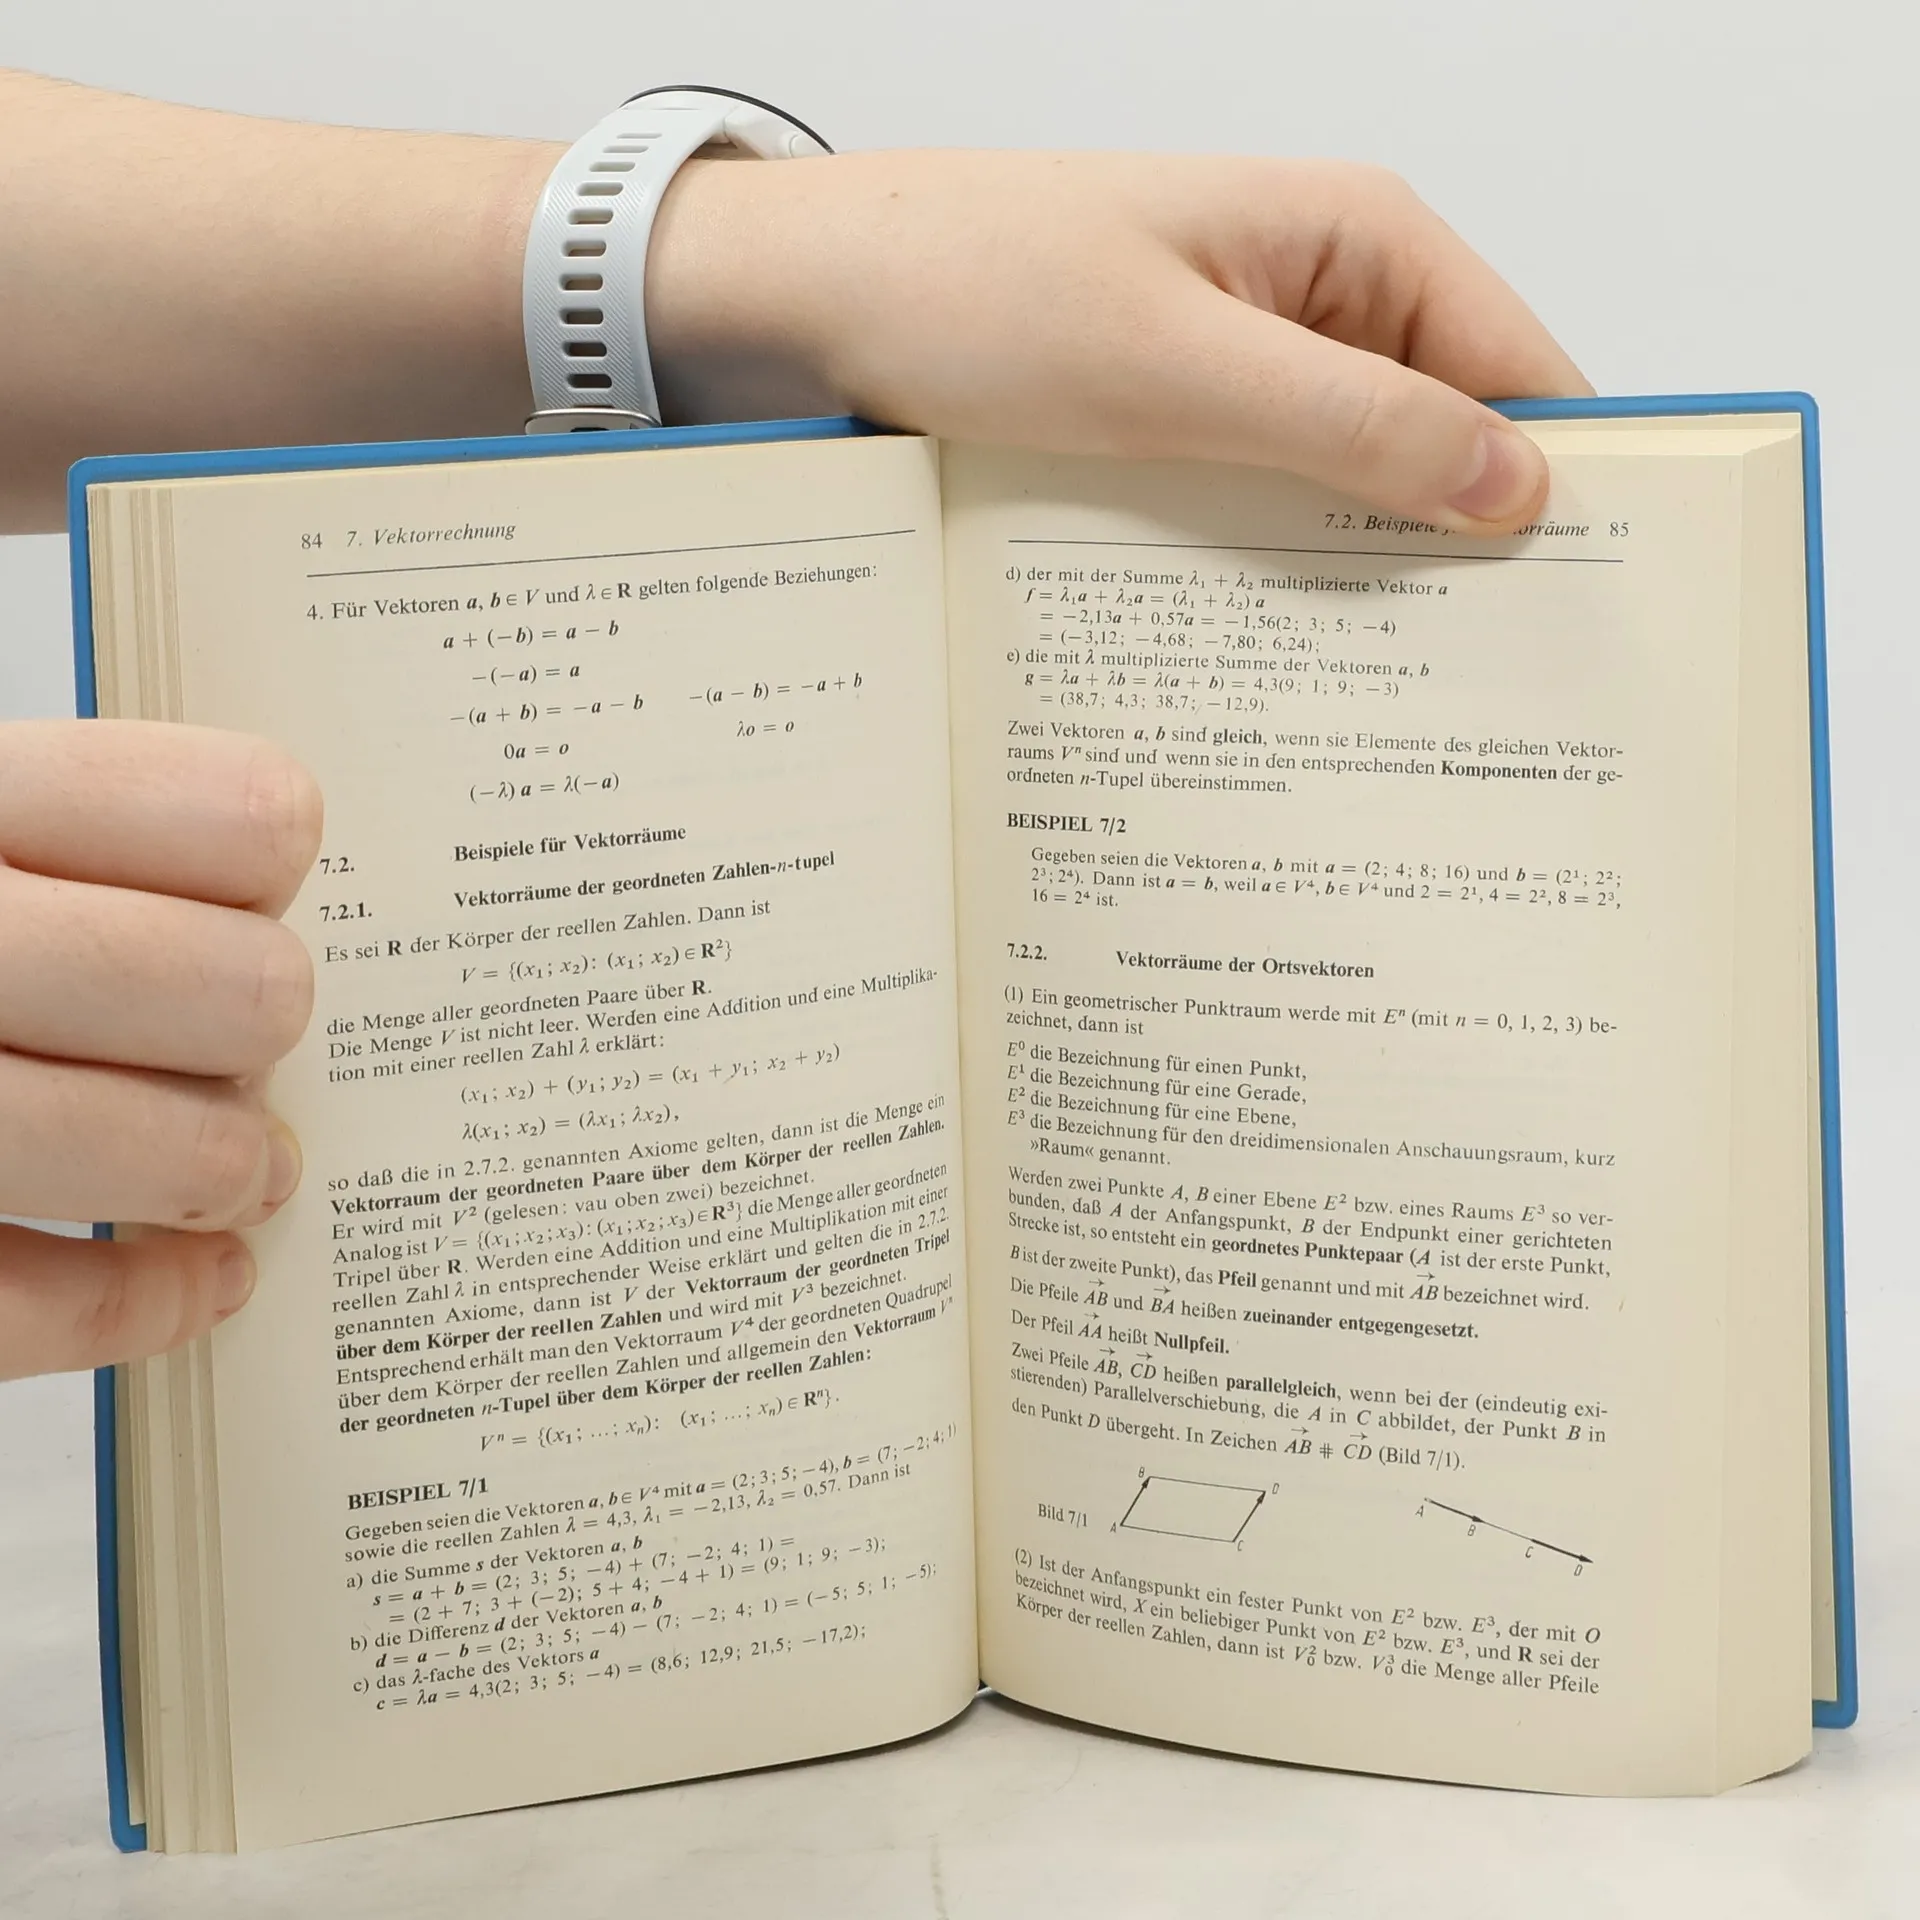 84 7. Vektorrechnung
4. Für Vektoren a, b ∈ V und λ ∈ R gelten folgende Beziehungen:
a + (−b) = a − b
−(−a) = a
−(a + b) = −a − b −(a − b) = −a + b
0a = o λo = o
(−λ) a = λ(−a)
7.2. Beispiele für Vektorräume
7.2.1. Vektorräume der geordneten Zahlen-n-tupel
Es sei R der Körper der reellen Zahlen. Dann ist
V = {(x₁; x₂): (x₁; x₂) ∈ R²}
die Menge aller geordneten Paare über R.
Die Menge V ist nicht leer. Werden eine Addition und eine Multiplika-
tion mit einer reellen Zahl λ erklärt:
(x₁; x₂) + (y₁; y₂) = (x₁ + y₁; x₂ + y₂)
λ(x₁; x₂) = (λx₁; λx₂),
so daß die in 2.7.2. genannten Axiome gelten, dann ist die Menge ein
Vektorraum der geordneten Paare über dem Körper der reellen Zahlen.
Er wird mit V² (gelesen: vau oben zwei) bezeichnet.
Analog ist V = {(x₁; x₂; x₃): (x₁; x₂; x₃) ∈ R³} die Menge aller geordneten
Tripel über R. Werden eine Addition und eine Multiplikation mit einer
reellen Zahl λ in entsprechender Weise erklärt und gelten die in 2.7.2.
genannten Axiome, dann ist V der Vektorraum der geordneten Tripel
über dem Körper der reellen Zahlen und wird mit V³ bezeichnet.
Entsprechend erhält man den Vektorraum V⁴ der geordneten Quadrupel
über dem Körper der reellen Zahlen und allgemein den Vektorraum Vⁿ
der geordneten n-Tupel über dem Körper der reellen Zahlen:
Vⁿ = {(x₁; ...; xₙ): (x₁; ...; xₙ) ∈ Rⁿ}.
BEISPIEL 7/1
Gegeben seien die Vektoren a, b ∈ V⁴ mit a = (2; 3; 5; −4), b = (7; −2; 4; 1)
sowie die reellen Zahlen λ = 4,3, λ₁ = −2,13, λ₂ = 0,57. Dann ist
a) die Summe s der Vektoren a, b
s = a + b = (2; 3; 5; −4) + (7; −2; 4; 1) =
= (2 + 7; 3 + (−2); 5 + 4; −4 + 1) = (9; 1; 9; −3);
b) die Differenz d der Vektoren a, b
d = a − b = (2; 3; 5; −4) − (7; −2; 4; 1) = (−5; 5; 1; −5);
c) das λ-fache des Vektors a
c = λa = 4,3(2; 3; 5; −4) = (8,6; 12,9; 21,5; −17,2);
7.2. Beispiele 85
d) der mit der Summe λ₁ + λ₂ multiplizierte Vektor a
f = λ₁a + λ₂a = (λ₁ + λ₂) a
= −2,13a + 0,57a = −1,56(2; 3; 5; −4)
= (−3,12; −4,68; −7,80; 6,24);
e) die mit λ multiplizierte Summe der Vektoren a, b
g = λa + λb = λ(a + b) = 4,3(9; 1; 9; −3)
= (38,7; 4,3; 38,7; −12,9).
Zwei Vektoren a, b sind gleich, wenn sie Elemente des gleichen Vektor-
raums Vⁿ sind und wenn sie in den entsprechenden Komponenten der ge-
ordneten n-Tupel übereinstimmen.
BEISPIEL 7/2
Gegeben seien die Vektoren a, b mit a = (2; 4; 8; 16) und b = (2¹; 2²;
2³; 2⁴). Dann ist a = b, weil a ∈ V⁴, b ∈ V⁴ und 2 = 2¹, 4 = 2², 8 = 2³,
16 = 2⁴ ist.
7.2.2. Vektorräume der Ortsvektoren
(1) Ein geometrischer Punktraum werde mit Eⁿ (mit n = 0, 1, 2, 3) be-
zeichnet, dann ist
E⁰ die Bezeichnung für einen Punkt,
E¹ die Bezeichnung für eine Gerade,
E² die Bezeichnung für eine Ebene,
E³ die Bezeichnung für den dreidimensionalen Anschauungsraum, kurz
»Raum« genannt.
Werden zwei Punkte A, B einer Ebene E² bzw. eines Raums E³ so ver-
bunden, daß A der Anfangspunkt, B der Endpunkt einer gerichteten
Strecke ist, so entsteht ein geordnetes Punktepaar (A ist der erste Punkt,
B ist der zweite Punkt), das Pfeil genannt und mit A⃗B⃗ bezeichnet wird.
Die Pfeile A⃗B⃗ und B⃗A⃗ heißen zueinander entgegengesetzt.
Der Pfeil A⃗A⃗ heißt Nullpfeil.
Zwei Pfeile A⃗B⃗, C⃗D⃗ heißen parallelgleich, wenn bei der (eindeutig exi-
stierenden) Parallelverschiebung, die A in C abbildet, der Punkt B in
den Punkt D übergeht. In Zeichen A⃗B⃗ ⋕ C⃗D⃗ (Bild 7/1).
B D
Bild 7/1 A C
A B C D
(2) Ist der Anfangspunkt ein fester Punkt von E² bzw. E³, der mit O
bezeichnet wird, X ein beliebiger Punkt von E² bzw. E³, und R sei der
Körper der reellen Zahlen, dann ist V₀² bzw. V₀³ die Menge aller Pfeile